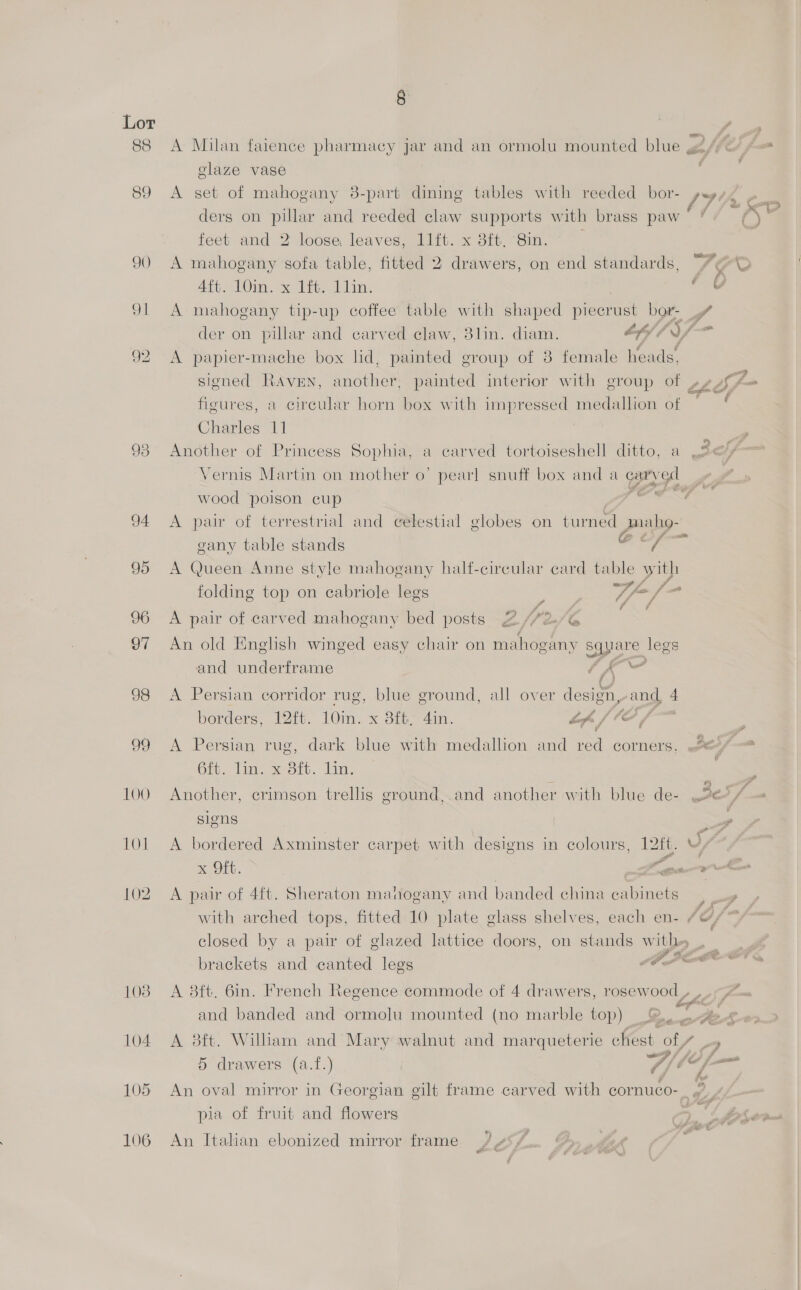 8
Lot
88 A Milan faience pharmacy jar and an ormolu mounted blue
glaze vase
89 A set of mahogany 3-part dining tables with reeded bor-
ders on pillar and reeded claw supports with brass paw
feet and 2 loose leaves, 11ft. x 3ft. 8in.
90 A mahogany sofa table, fitted 2 drawers, on end standards,
4ft. 10in. x 1ft. 11in.
91 A mahogany tip-up coffee table with shaped piecrust bor-
der on pillar and carved claw, 31in. diam.
92 A papier-mache box lid, painted group of 3 female heads,
signed RAVEN, another, painted interior with group of
figures, a circular horn box with impressed medallion of
Charles 11
93 Another of Princess Sophia, a carved tortoiseshell ditto, a
Vernis Martin on mother o' pearl snuff box and a carved
wood poison cup
94 A pair of terrestrial and celestial globes on turned maho-
gany table stands
95 A Queen Anne style mahogany half-circular card table with
folding top on cabriole legs
96 A pair of carved mahogany bed posts
97 An old English winged easy chair on mahogany square legs
and underframe
98 A Persian corridor rug, blue ground, all over design, and 4
borders, 12ft. 10in. x 3ft. 4in.
99 A Persian rug, dark blue with medallion and red corners,
6ft. 1in. x 3ft. 1in.
100 Another, crimson trellis ground, and another with blue de-
signs
101 A bordered Axminster carpet with designs in colours, 12ft.
x 9ft.
102 A pair of 4ft. Sheraton mahogany and banded china cabinets
with arched tops, fitted 10 plate glass shelves, each en-
closed by a pair of glazed lattice doors, on stands with
brackets and canted legs
103 A 3ft. 6in. French Regence commode of 4 drawers, rosewood
and banded and ormolu mounted (no marble top)
104 A 3ft. William and Mary walnut and marqueterie chest of
5 drawers (a.f.)
105 An oval mirror in Georgian gilt frame carved with cornuco-
pia of fruit and flowers
106 An Italian ebonized mirror frame